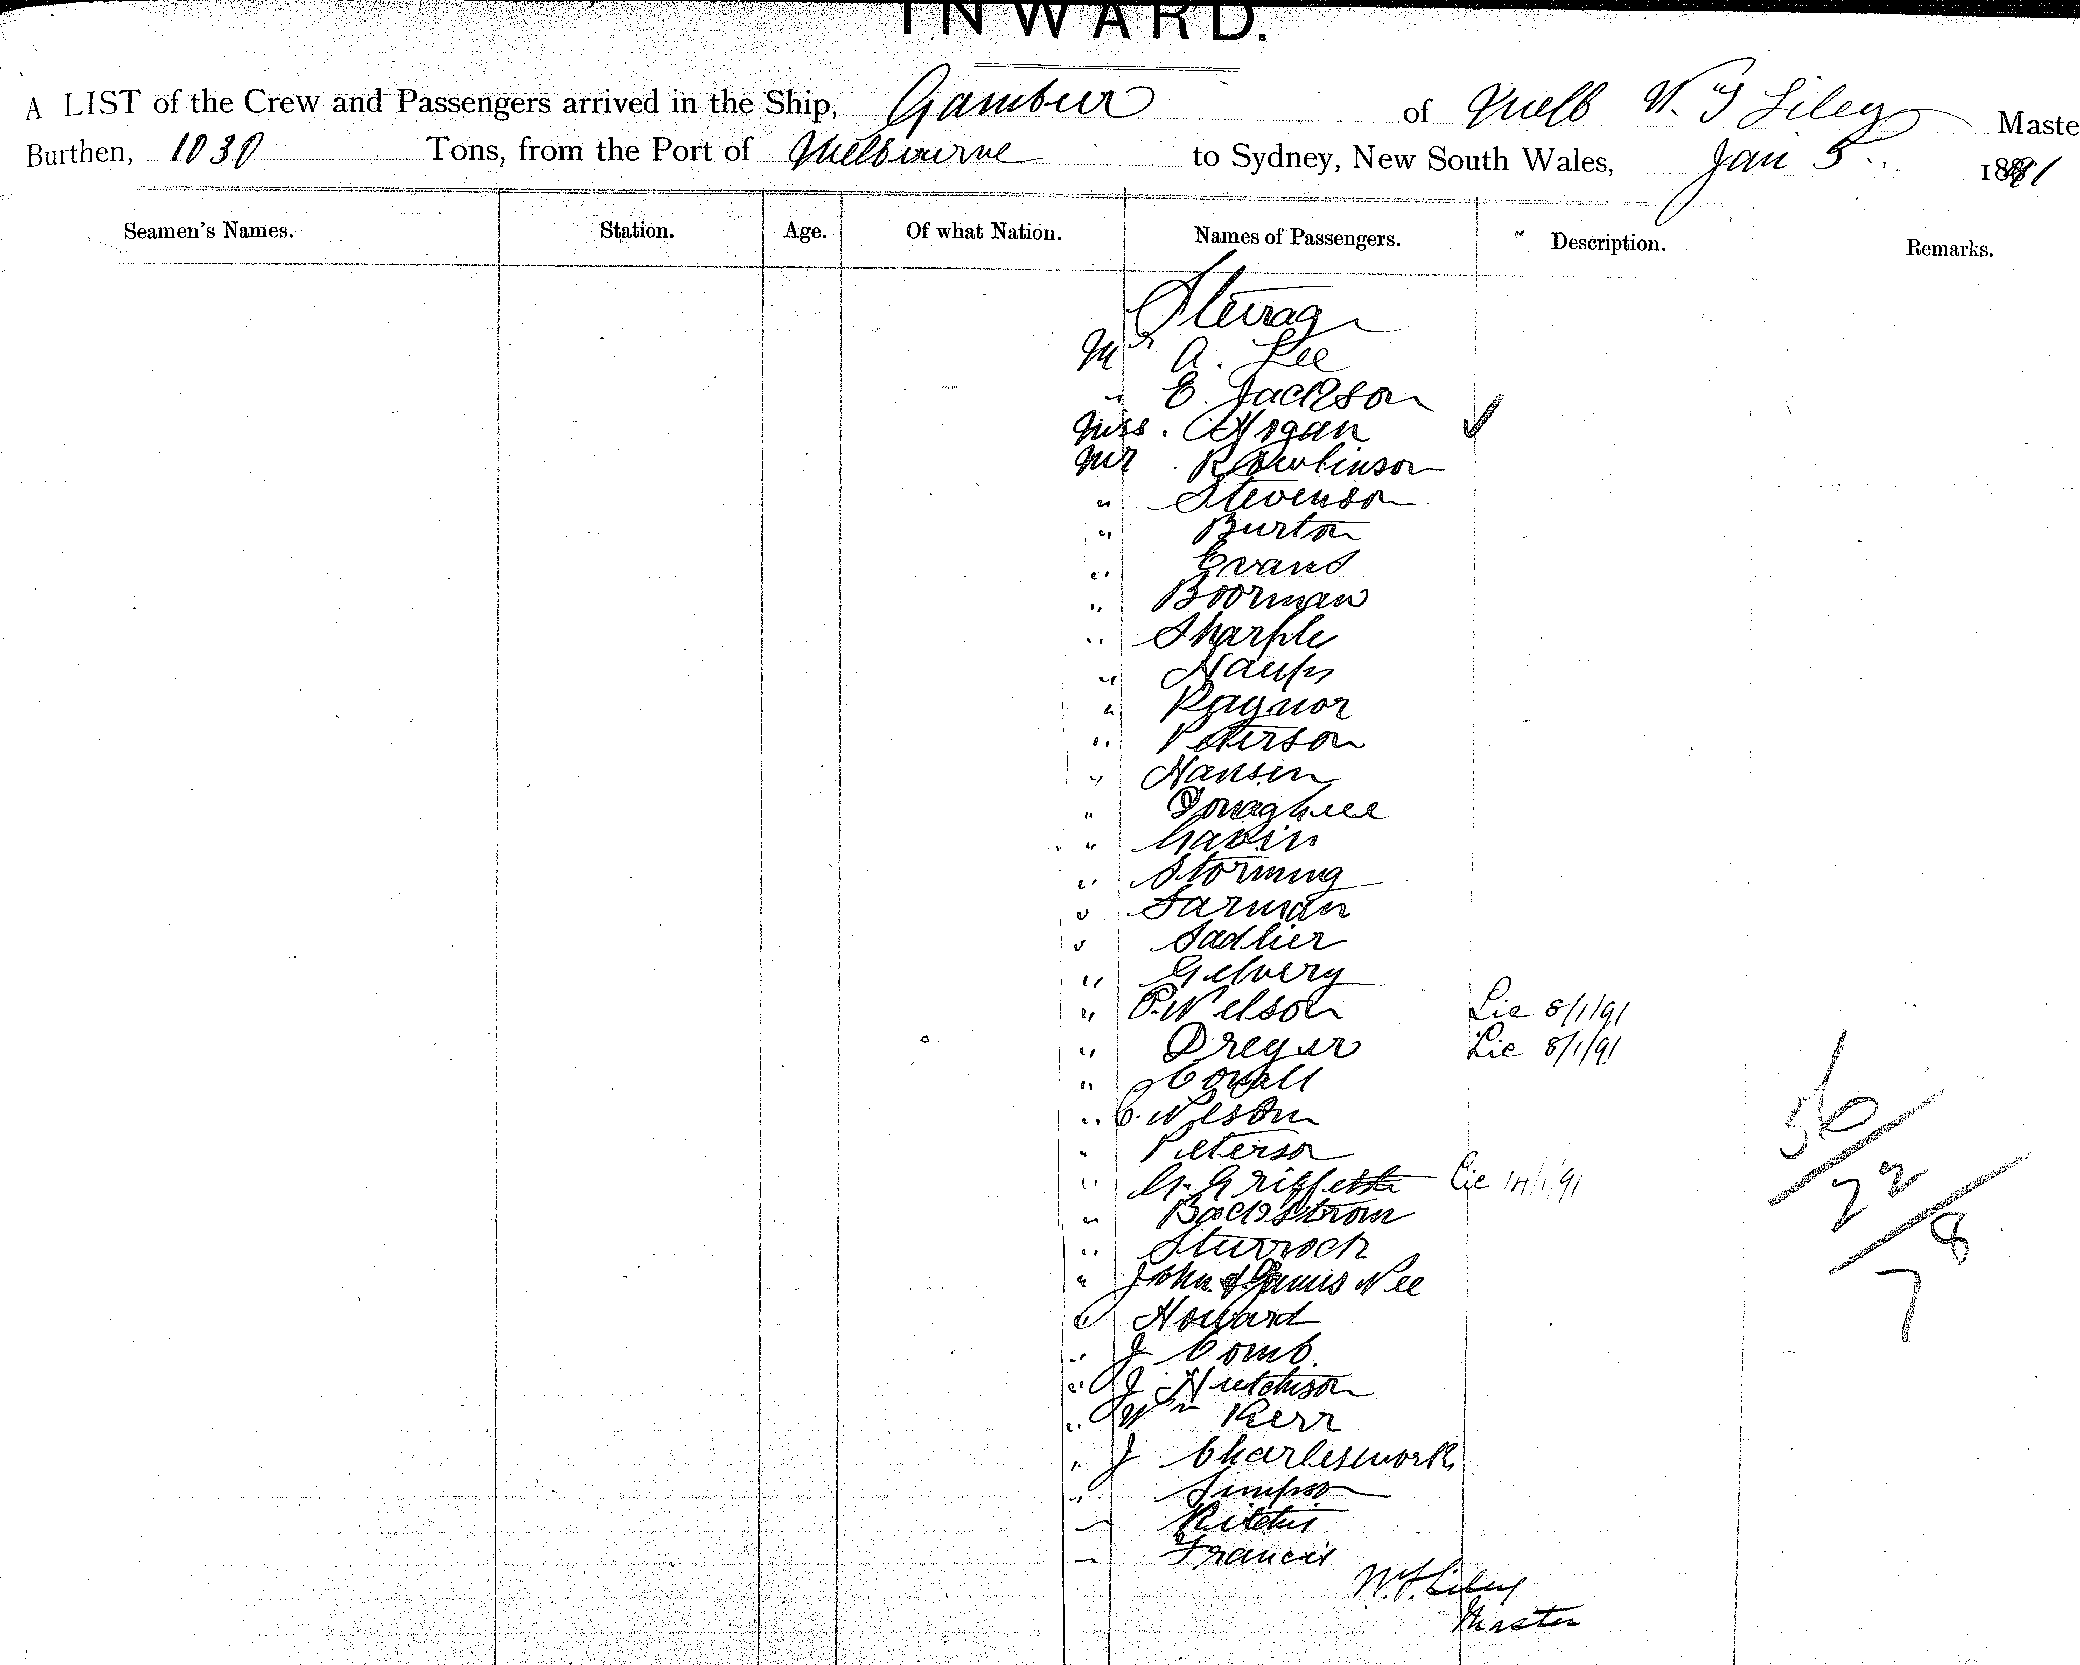 INWARD.
A LIST of the Crew and Passengers arrived in the Ship, Gambier of Melb W. J Liley Maste
Burthen, 1030 Tons, from the Port of Melbourne to Sydney, New South Wales, Jan 5 1891
Seamen's Names. Station. Age. Of what Nation. Names of Passengers. Description. Remarks.
Steerag
Mr A. Lee
" E. Jackson
Miss. Hogan
Mr Rawlinson
" Stevenson
" Burton
" Evans
" Boorman
" Sharple
"
" Raynor
" Peterson
" Hansen
" Donaghuee
" Gavin
" Storming
" Jarman
" Sadlier
" Gelvery
" P. Nelson Lic 8/1/91
" Dreyer Lic 8/1/91
"
" C. Nelson
" Peterson
" G. Griffeths Lic 14/1/91
" Backstrom
" Sturrock
" John & James Nee
" Howard
" J Comb.
" J Hutchison
" Wm Kerr
" J Charlesworth
" Simpson
" Ritchie
" Francis
W. J. Liley
Master
56
22
8
7